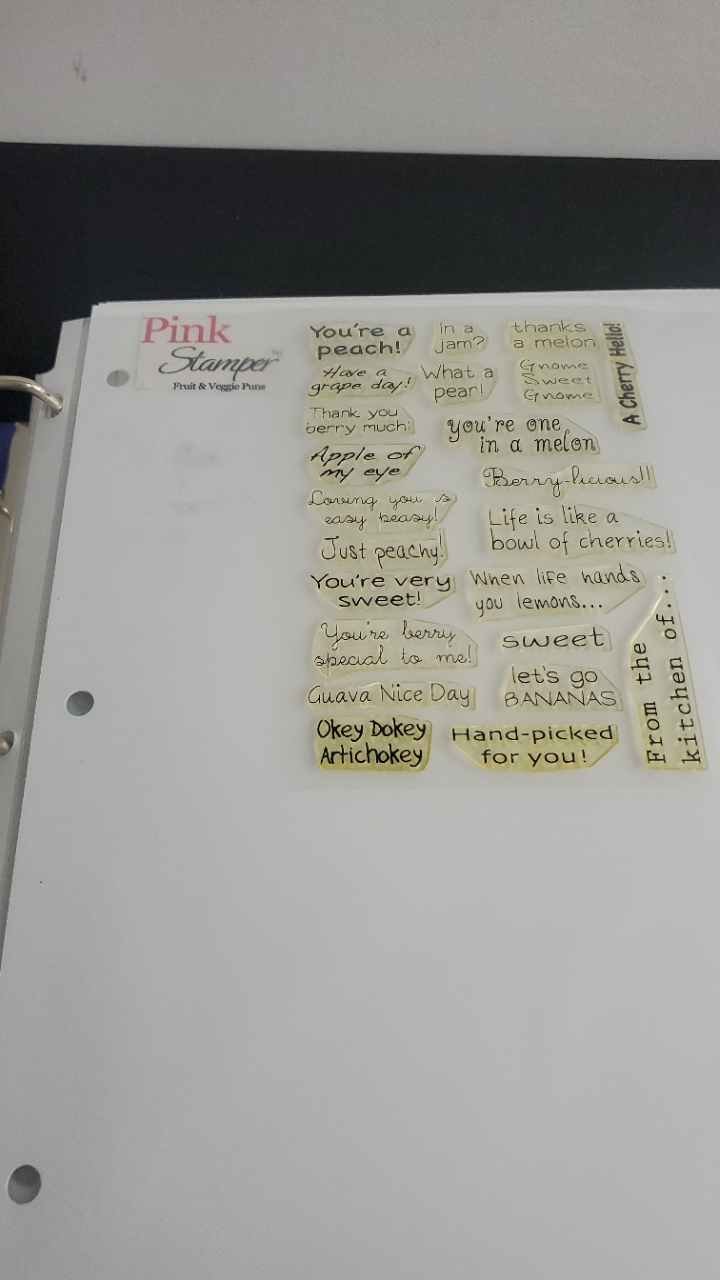 Pink
Stamper™
Fruit & Veggie Puns
You're a
peach!
In a
jam?
thanks
a melon
A Cherry Hello!
Have a
grape day!
What a
pear!
Gnome
Sweet
Gnome
Thank you
berry much!
you're one
in a melon
Apple of
my eye
Berry-licious!!
Loving you is
easy peasy!
Life is like a
bowl of cherries!
Just peachy!
You're very
sweet!
When life hands
you lemons...
You're berry
special to me!
sweet
From the
kitchen of...
Guava Nice Day
let's go
BANANAS
Okey Dokey
Artichokey
Hand-picked
for you!